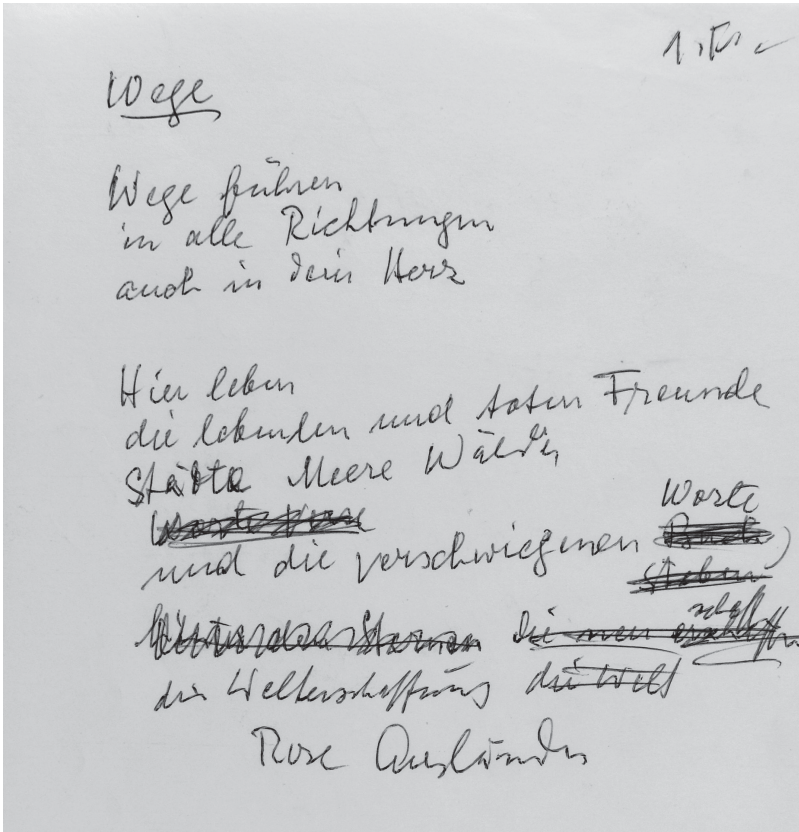 Wege
Wege führen
in alle Richtungen
auch in dein Herz
Hier leben
die lebenden und toten Freunde
Städte Meere Wälder
Worte
und die verschwiegenen
die neu
die Welterschaffung die Welt
Rose Ausländer